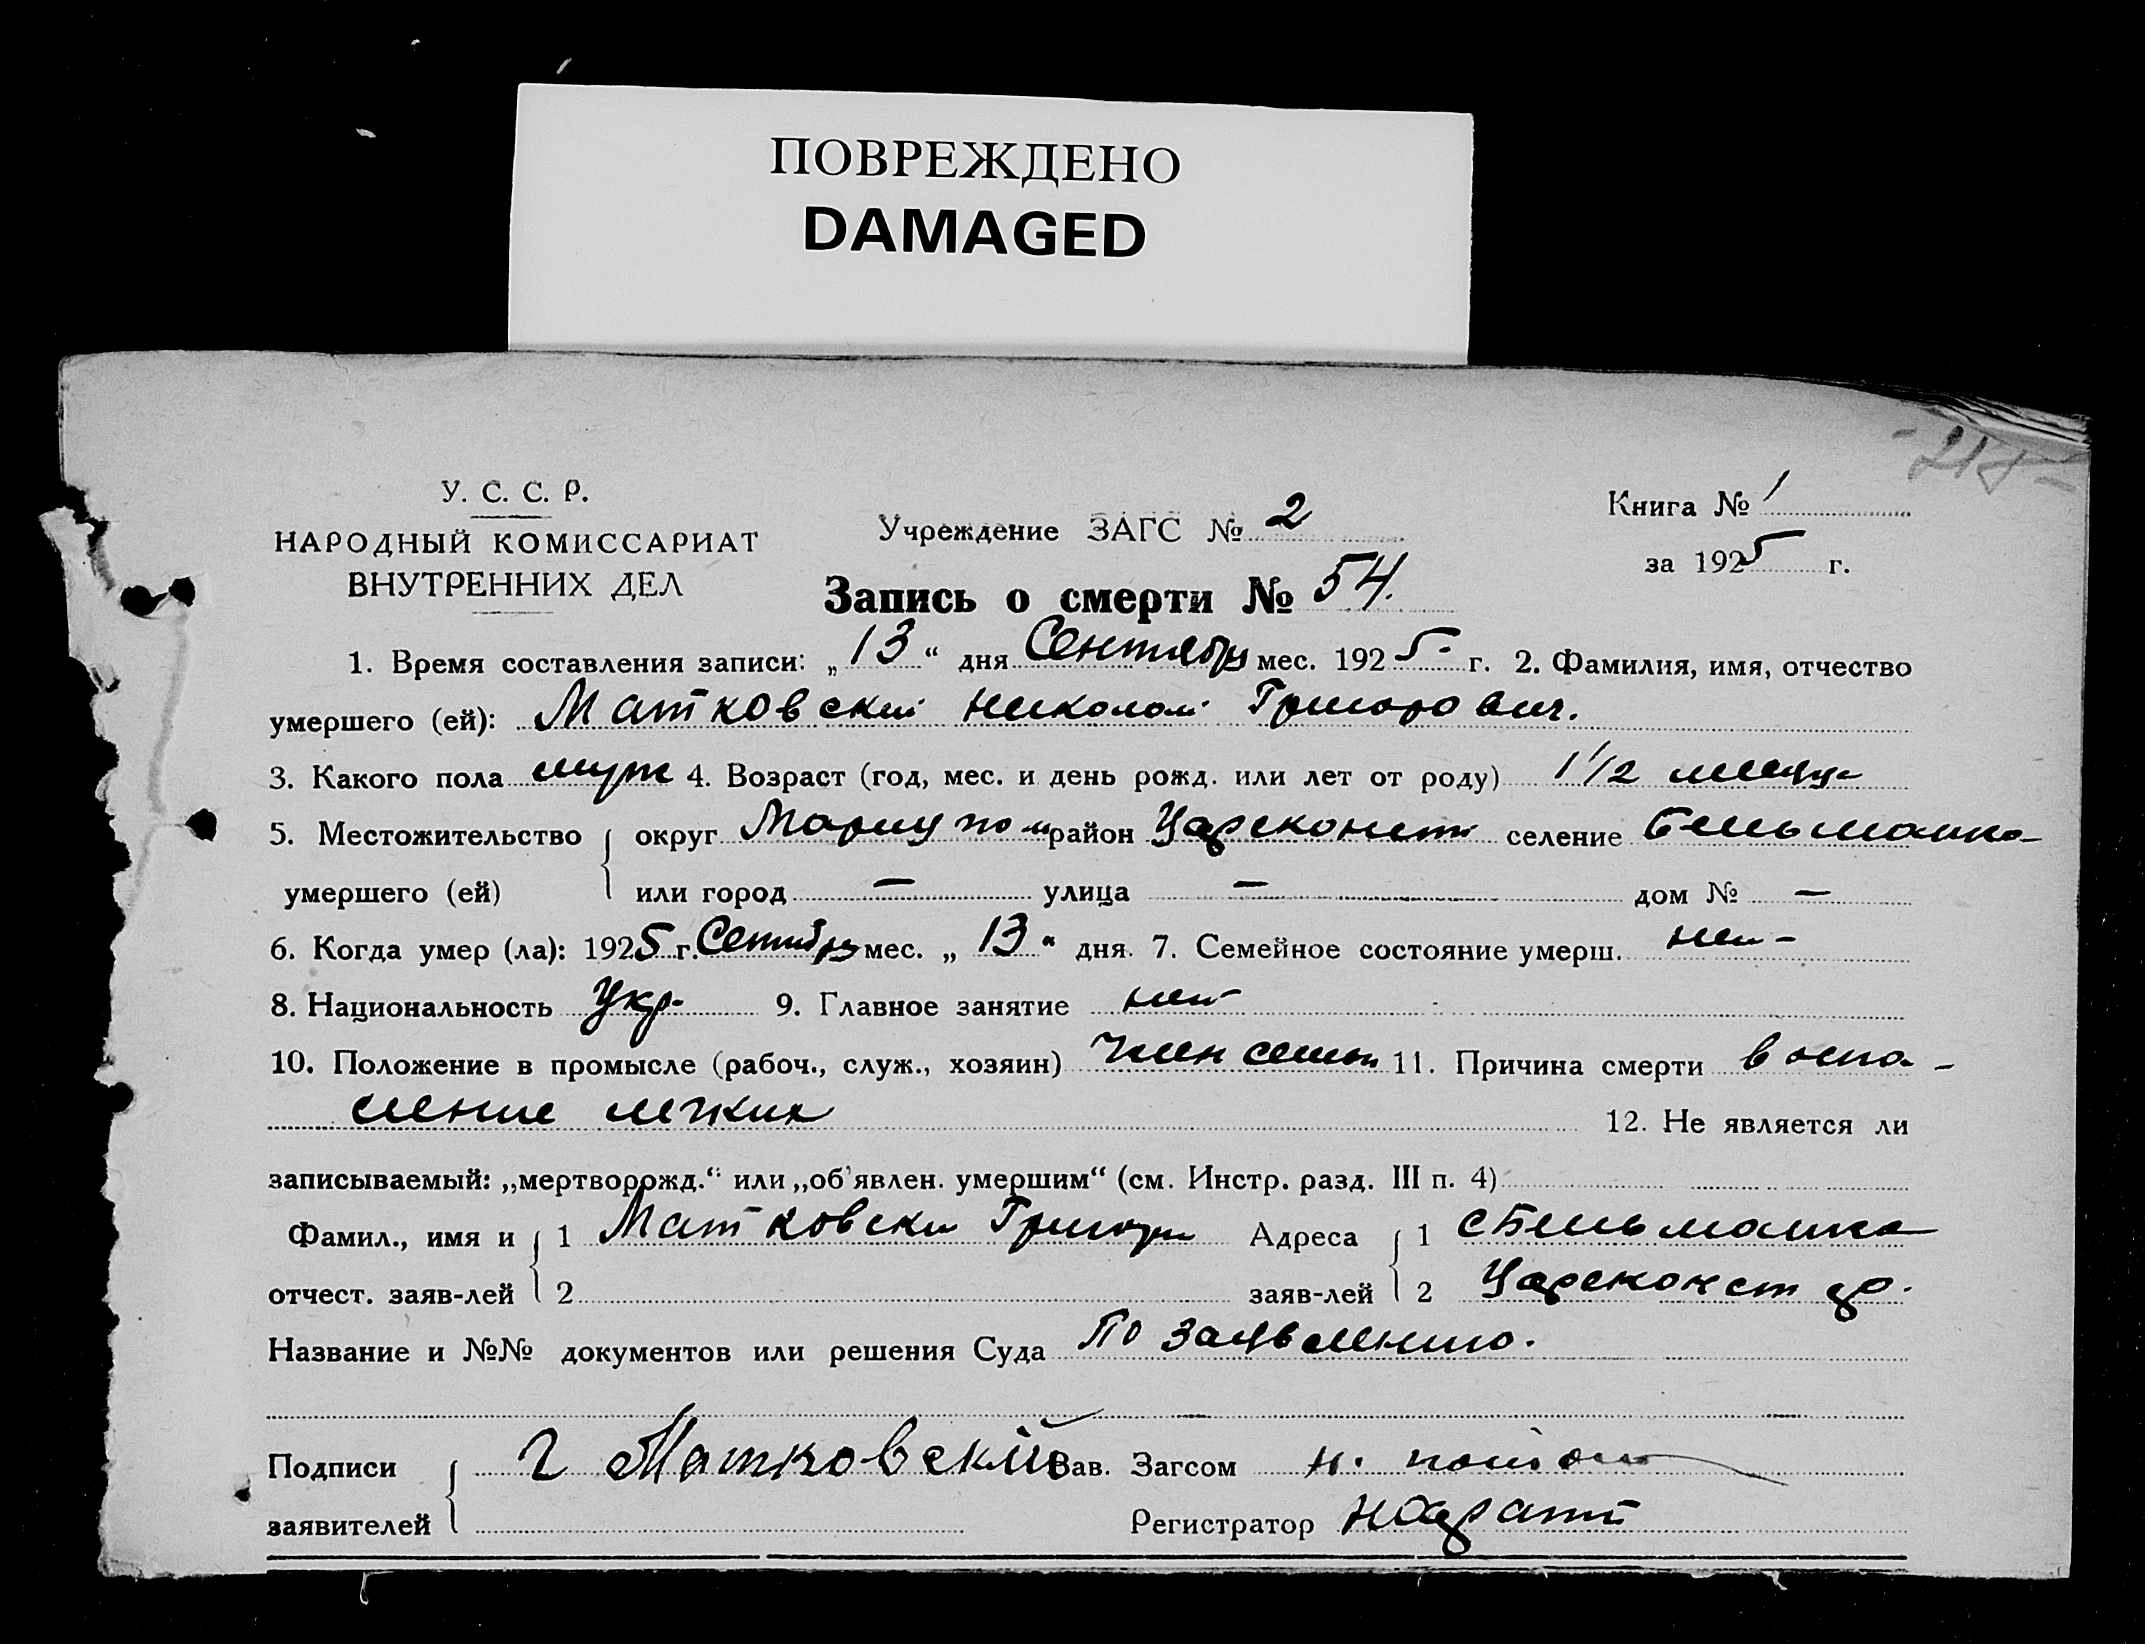 ПОВРЕЖДЕНО
DAMAGED
У. С. С. Р.
НАРОДНЫЙ КОМИССАРИАТ
ВНУТРЕННИХ ДЕЛ
Учреждение ЗАГС № 2
Книга № 1
за 1925 г.
Запись о смерти № 54.
1. Время составления записи: „13“ дня Сентября мес. 1925 г. 2. Фамилия, имя, отчество
умершего (ей): Матковский Николай Григорович.
3. Какого пола муж 4. Возраст (год, мес. и день рожд. или лет от роду) 1 1/2 месяца
5. Местожительство умершего (ей) { округ Мариупол район Царсконст селение Бельманка
или город — улица — дом № —
6. Когда умер (ла): 1925 г. Сентября мес. „13“ дня. 7. Семейное состояние умерш. нет
8. Национальность Укр. 9. Главное занятие нет
10. Положение в промысле (рабоч., служ., хозяин) член семьи 11. Причина смерти воспа-
ление легких 12. Не является ли
записываемый: „мертворожд.“ или „об'явлен. умершим“ (см. Инстр. разд. III п. 4)
Фамил., имя и отчест. заяв-лей { 1 Матковски Григори Адреса заяв-лей { 1 с Бельманка
2 2 Царсконст
Название и №№ документов или решения Суда По заявлению.
Подписи заявителей { Г Матковский Зав. Загсом Н.
Регистратор